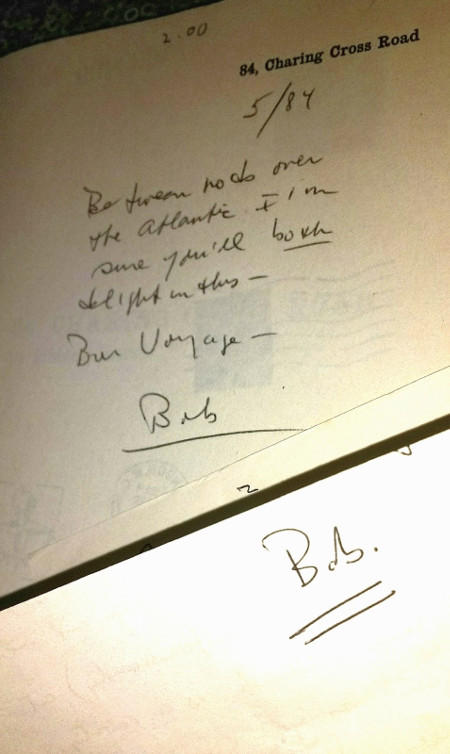 2.00
84, Charing Cross Road
5/84
Between nods over
the Atlantic I'm
sure you'll both
delight in this —
Bon Voyage —
Bob
Bob.